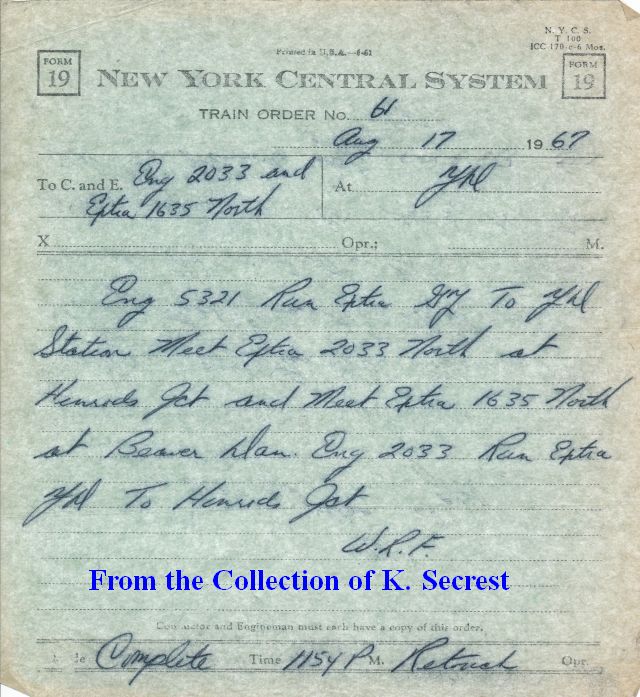 N.Y.C.S.
T 100
ICC 170-c-6 Mos.
Printed in U.S.A.—6-61
FORM 19
NEW YORK CENTRAL SYSTEM
FORM 19
TRAIN ORDER No. 61
Aug 17 1967
To C. and E. Eng 2033 and
Extra 1635 North
At Yhl
X Opr.; M.
Eng 5321 Run Extra GJ To Yhl
Station Meet Extra 2033 North at
Himrods Jct and Meet Extra 1635 North
at Beaver Dam. Eng 2033 Run Extra
Yhl To Himrods Jct
W.R.F.
From the Collection of K. Secrest
Conductor and Engineman must each have a copy of this order.
Complete Time 1154 P M. Opr.